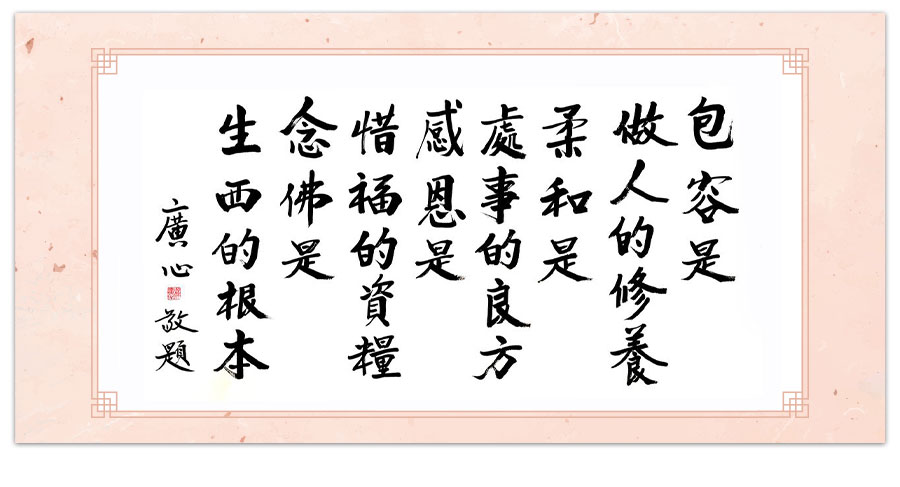 包容是
做人的修養
柔和是
處事的良方
感恩是
惜福的資糧
念佛是
生西的根本
廣心
敬題